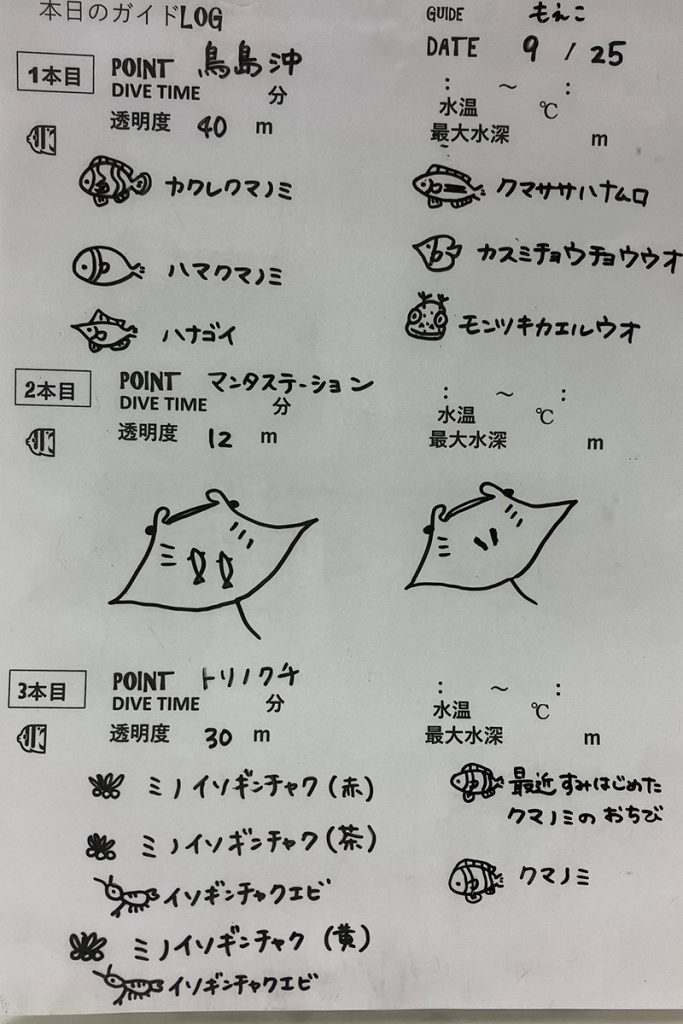 本日のガイドLOG
GUIDE もえこ
DATE 9 / 25
1本目 POINT 鳥島沖
DIVE TIME 分 : ～ :
水温 ℃
透明度 40 m 最大水深 m
カクレクマノミ クマササハナムロ
ハマクマノミ カスミチョウチョウウオ
ハナゴイ モンツキカエルウオ
2本目 POINT マンタステーション
DIVE TIME 分 : ～ :
水温 ℃
透明度 12 m 最大水深 m
3本目 POINT トリノクチ
DIVE TIME 分 : ～ :
水温 ℃
透明度 30 m 最大水深 m
ミノイソギンチャク(赤) 最近すみはじめた
クマノミのおちび
ミノイソギンチャク(茶)
イソギンチャクエビ クマノミ
ミノイソギンチャク(黄)
イソギンチャクエビ